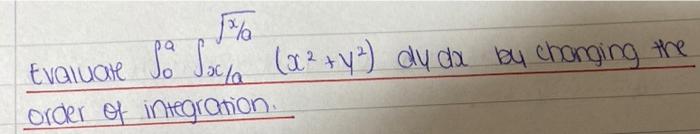 Evaluate ∫₀ᵃ ∫_{x/a}^{√(x/a)} (x² + y²) dy dx by changing the
order of integration.